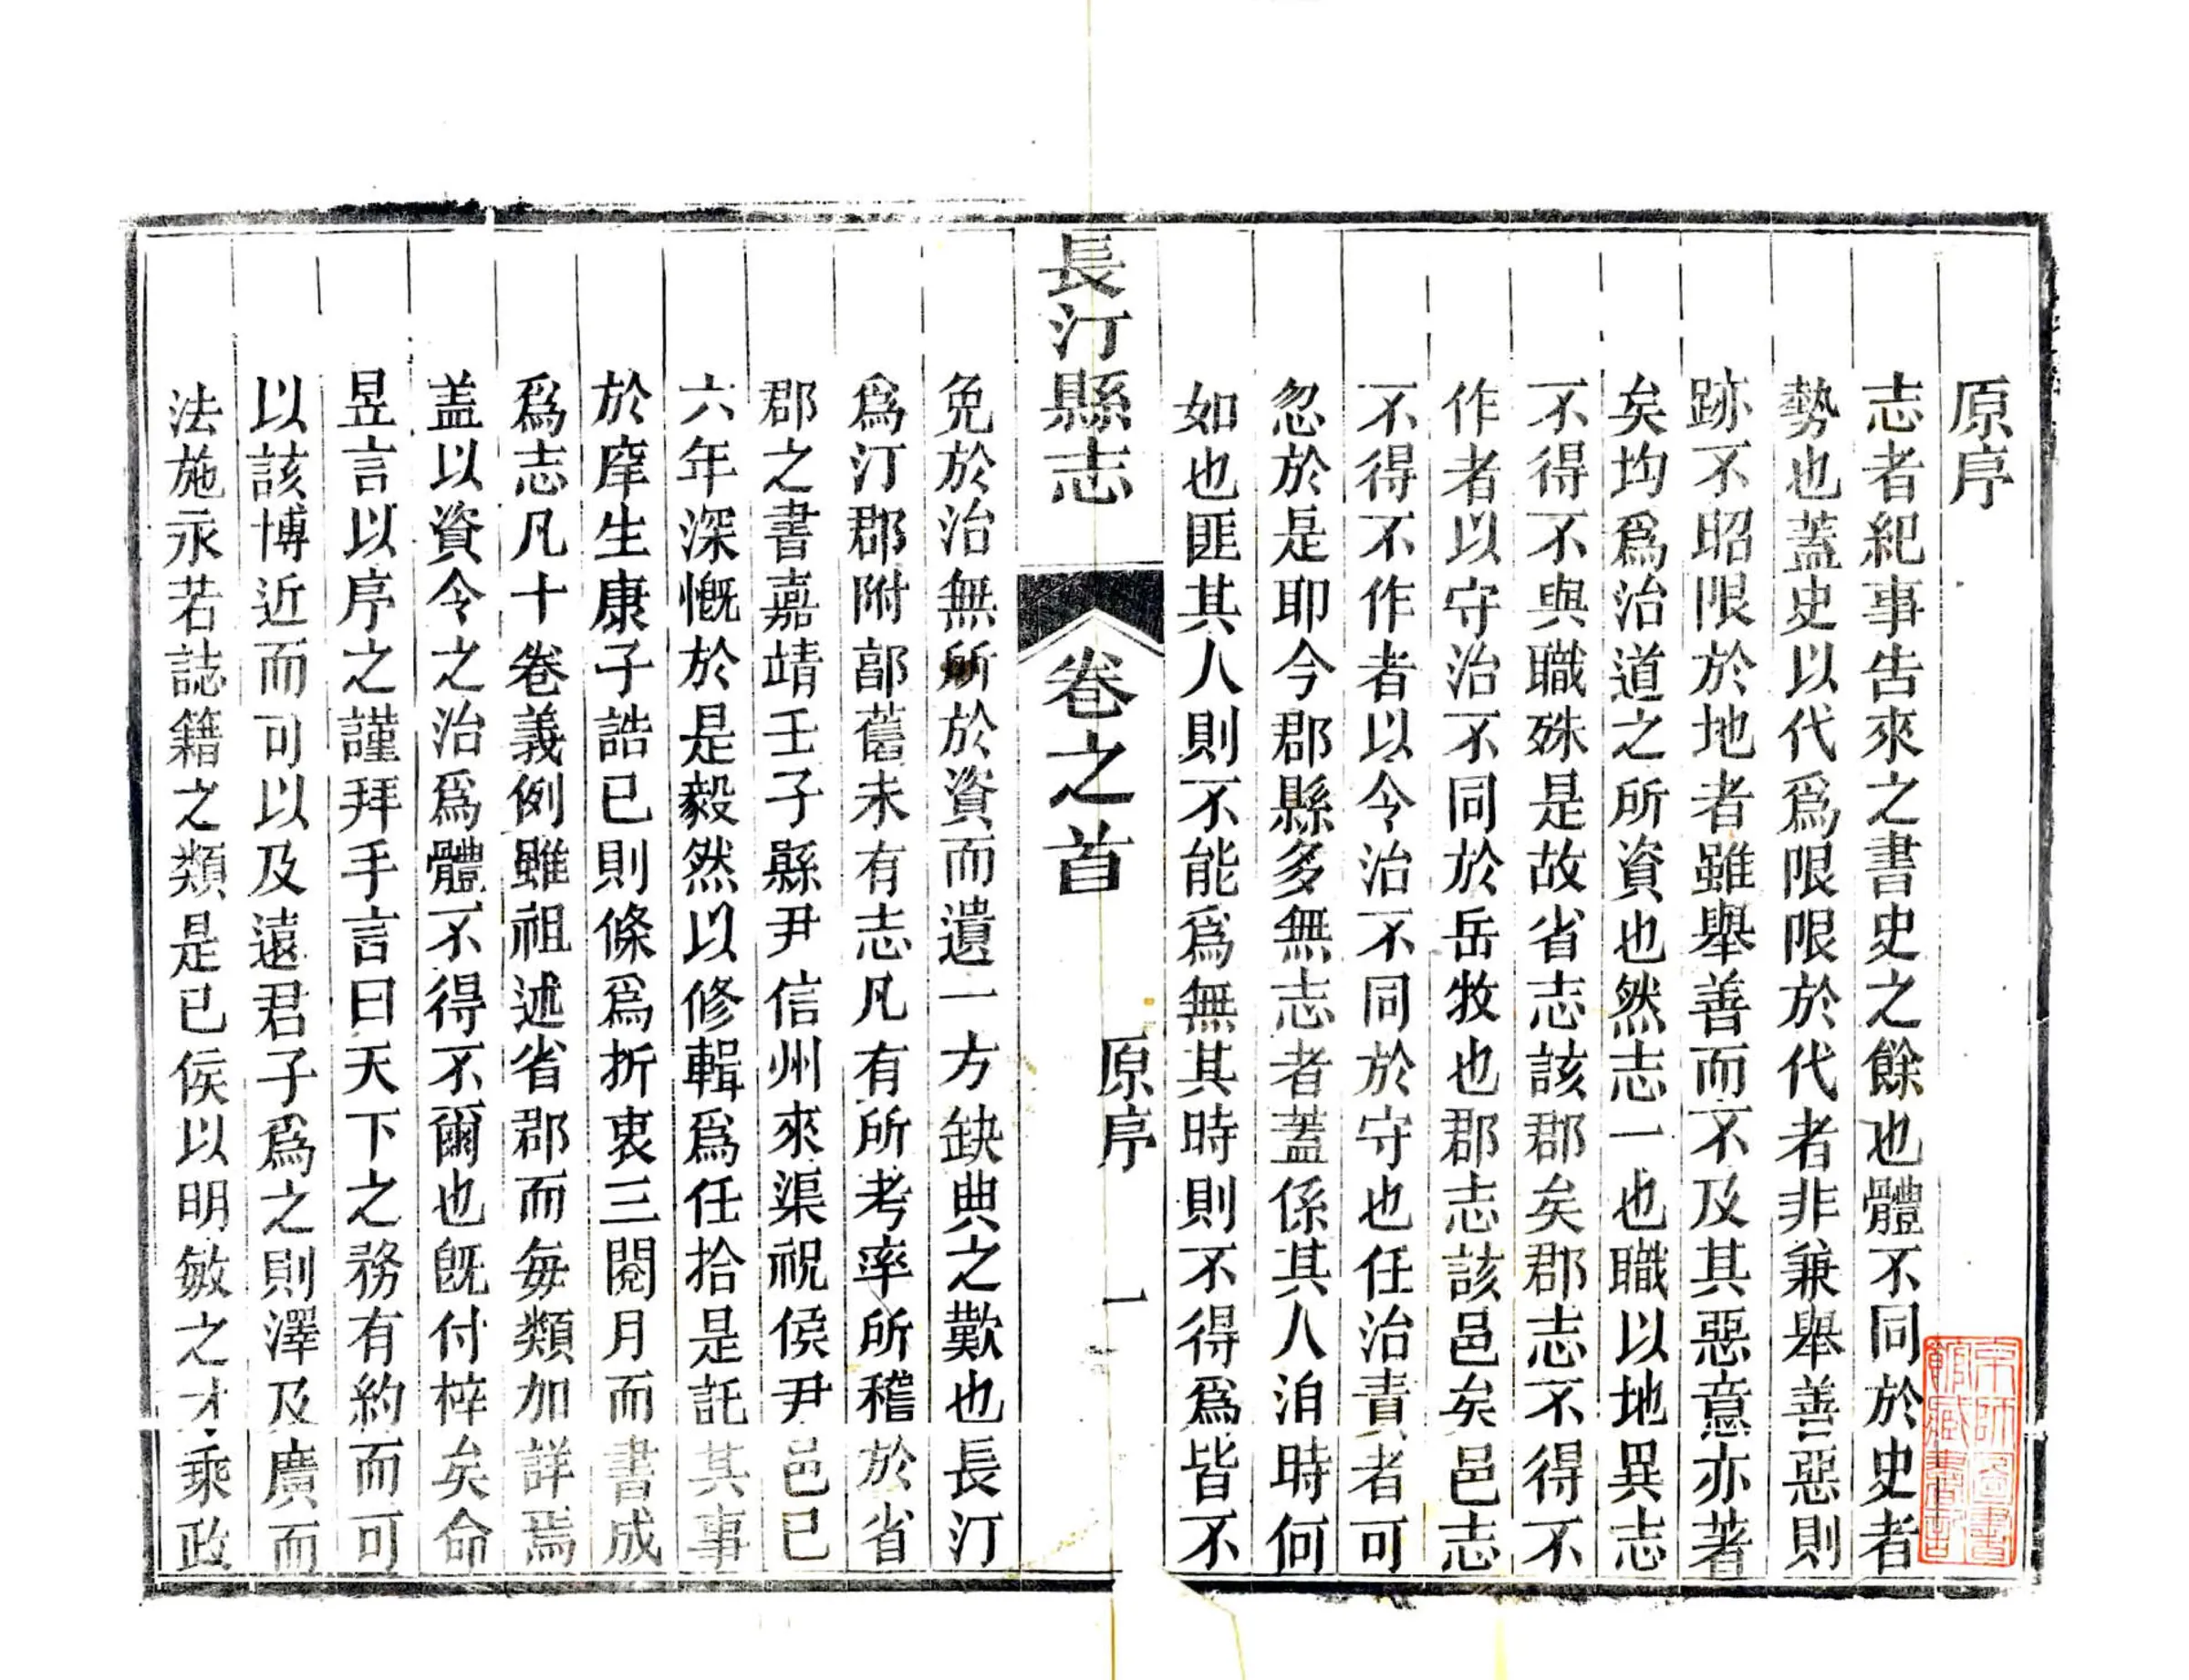 原序
志者紀事告來之書史之餘也體不同於史者
勢也蓋史以代爲限限於代者非兼舉善惡則
跡不昭限於地者雖舉善而不及其惡意亦著
矣均爲治道之所資也然志一也職以地異志
不得不與職殊是故省志該郡矣郡志不得不
作者以守治不同於岳牧也郡志該邑矣邑志
不得不作者以令治不同於守也任治責者可
忽於是耶今郡縣多無志者蓋係其人洎時何
如也匪其人則不能爲無其時則不得爲皆不
長汀縣志
卷之首
原序
一
免於治無所於資而遺一方缺典之歎也長汀
爲汀郡附郭舊未有志凡有所考率所稽於省
郡之書嘉靖壬子縣尹信州來渠祝侯尹邑已
六年深慨於是毅然以修輯爲任拾是託其事
於庠生康子誥已則條爲折衷三閱月而書成
爲志凡十卷義例雖祖述省郡而每類加詳焉
盖以資令之治爲體不得不爾也旣付梓矣命
昱言以序之謹拜手言曰天下之務有約而可
以該博近而可以及遠君子爲之則澤及廣而
法施永若誌籍之類是已侯以明敏之才乘政